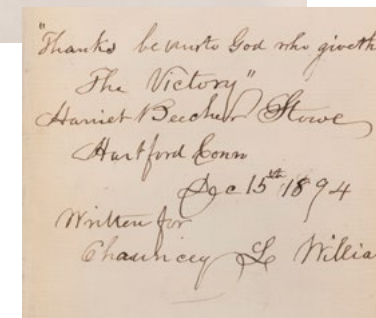 "Thanks be unto God who giveth
The Victory"
Harriet Beecher Stowe
Hartford Conn
Dec 15th 1894
Written for
Chauncey L Willia